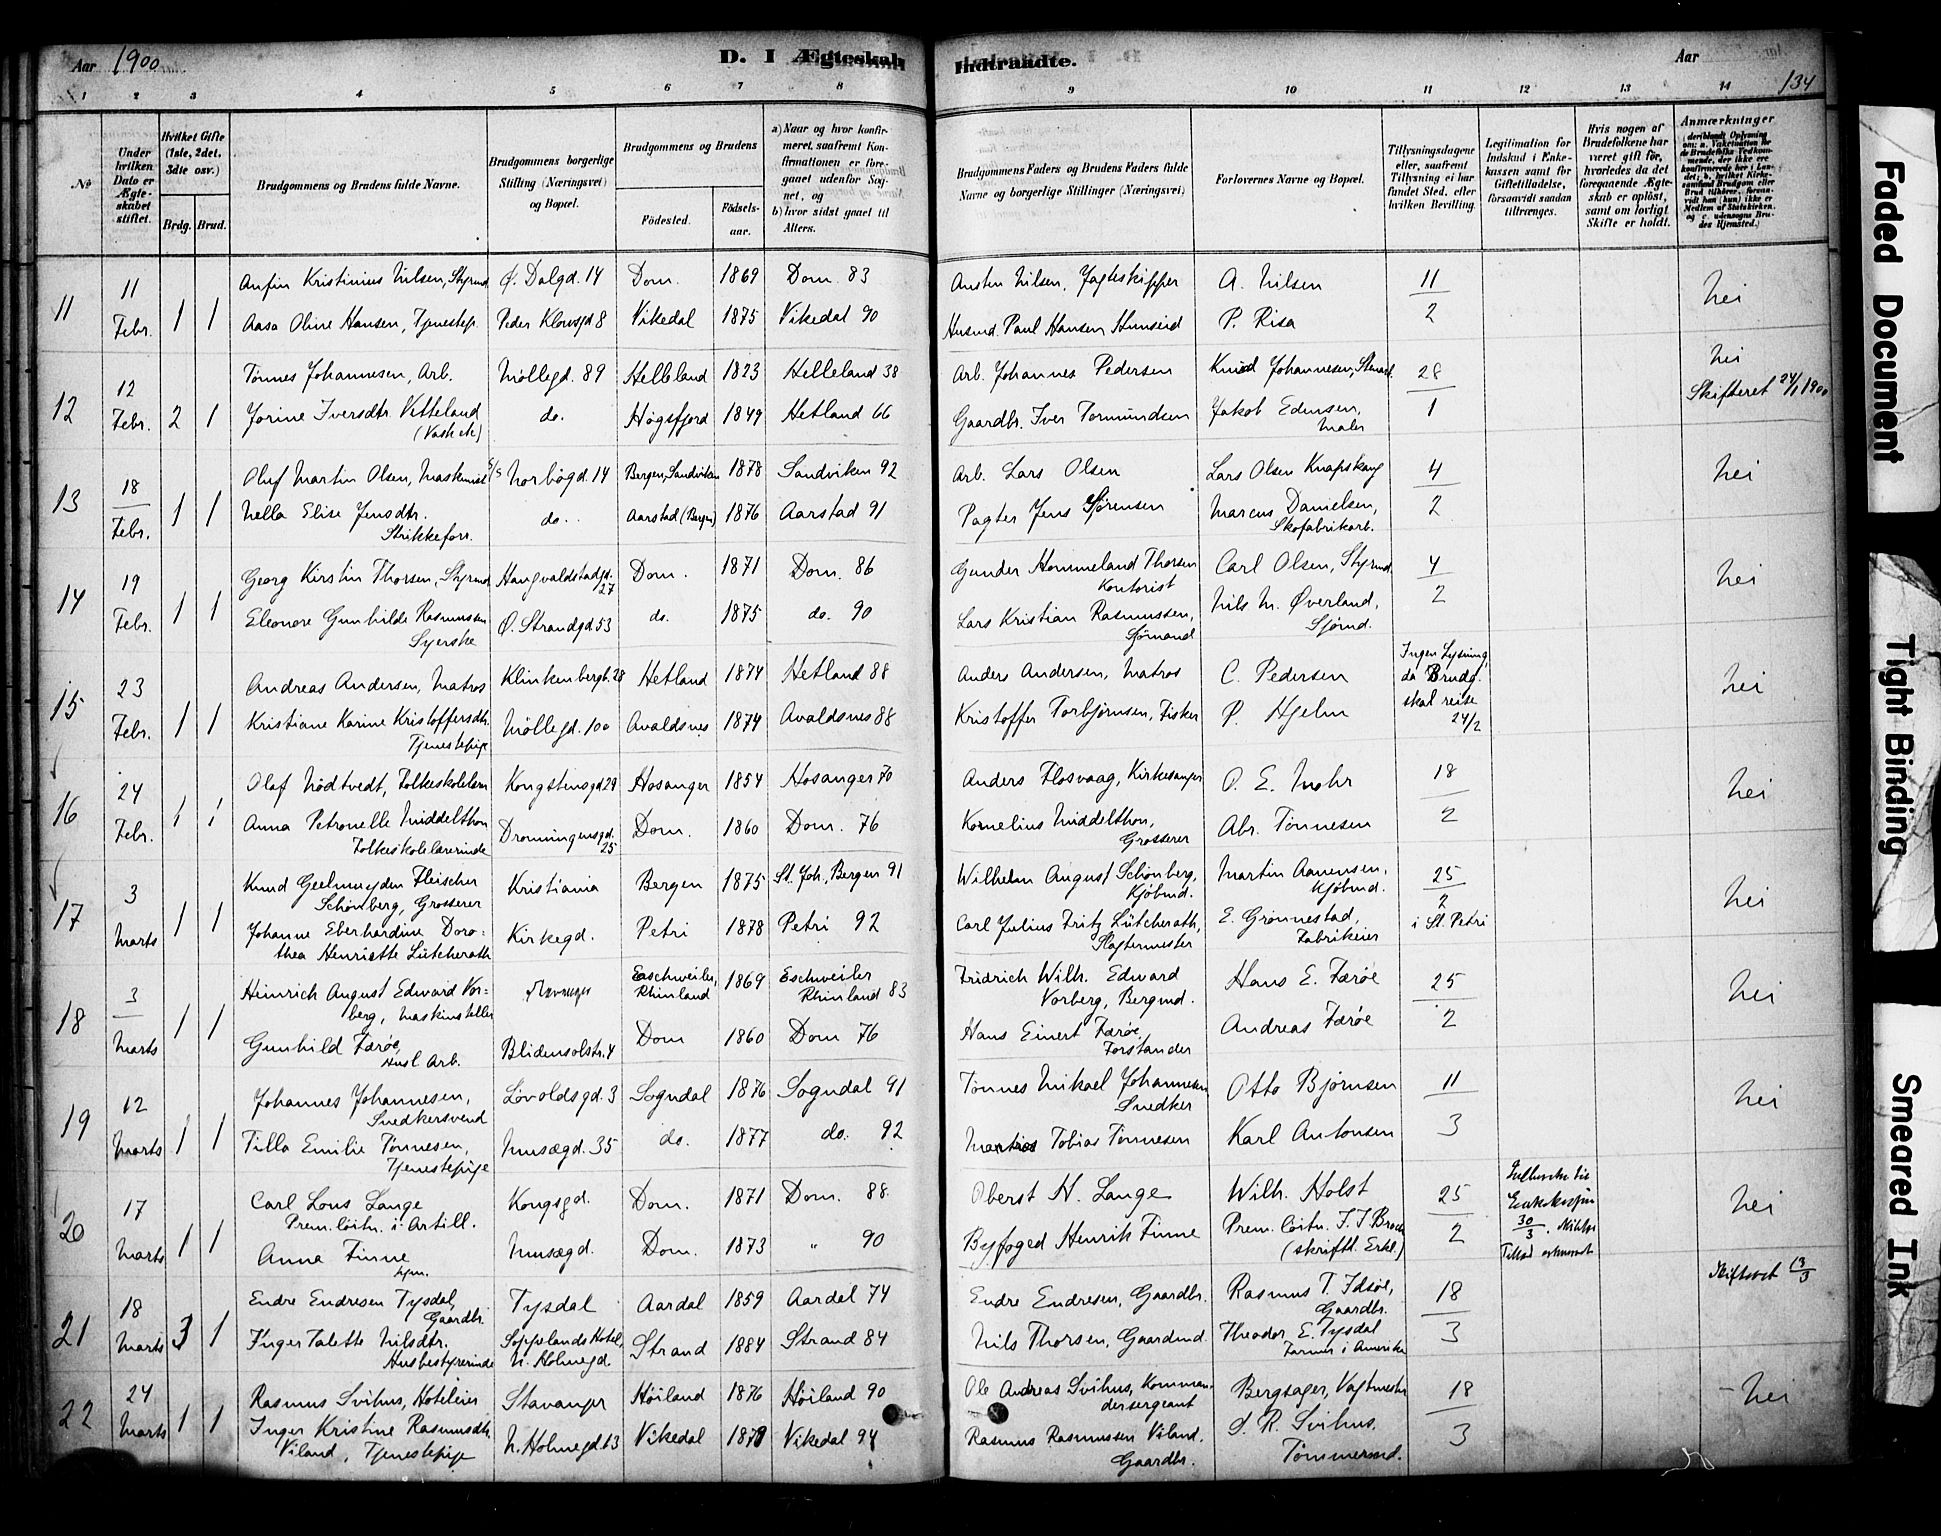 Aar 1900
D. I Ægteskab Indtraadte.
Aar
134
1 2 3 4 5 6 7 8 9 10 11 12 13 14
No
Under hvilken Dato er Ægteskabet stiftet.
Hvilket Gifte (1ste, 2det, 3die osv.)
Brdg. Brud.
Brudgommens og Brudens fulde Navne.
Brudgommens borgerlige Stilling (Næringsvei) og Bopæl.
Brudgommens og Brudens
Födested.
Födsels-aar.
a) Naar og hvor konfirmeret, saafremt Konfirmationen er foregaaet udenfor Sognet, og
b) hvor sidst gaaet til Alters.
Brudgommens Faders og Brudens Faders fulde Navne og borgerlige Stillinger (Næringsvei)
Forlovernes Navne og Bopæl.
Tillysningsdagene eller, saafremt Tillysning ei har fundet Sted, efter hvilken Bevilling.
Legitimation for Indskud i Enkekassen samt for Giftetilladelse, forsaavidt saadan tiltrænges.
Hvis nogen af Brudefolkene har været gift før, hvorledes da det foregaaende Ægteskab er opløst, samt om lovligt Skifte er holdt.
Anmærkninger
11
11 Febr. 1 1
Anfin Kristinius Nilsen, Styrmd. Ø. Dalgd. 14 Dom. 1869 Dom. 83 Austen Nilsen, Jagteskipper A. Nilsen 11/2 Nei
Aasa Oline Hansen, Tjenestep. Peder Klowsgd 8 Vikedal 1875 Vikedal 90 Husmd. Paul Hansen P. Risa
12
12 Febr. 2 1
Tønnes Johannesen, Arb. Møllegd. 89 Helleland 1823 Helleland 38 Arb. Johannes Pedersen Knud Johannesen, 28/1 Nei
Skifteret 24/1 1900
Jorine Iversdtr. Vetteland do. Høgsfjord 1849 Hetland 66 Gaardbr. Iver Tormundsen Jakob Edensen, Maler
13
18 Febr. 1 1
Oluf Martin Olsen, Maskinist Norbögd. 14 Bergen, Sandviken 1878 Sandviken 92 Arb. Lars Olsen Lars Olsen Knapskaug 4/2 Nei
Nella Elise Jensdtr. Strikkeforr. do. Aarstad (Bergen) 1876 Aarstad 91 Pagter Jens Sørensen Marcus Danielsen, Skofabrikarb.
14
19 Febr. 1 1
Georg Kirstin Thorsen, Styrmd Haugvaldstadgd. 27 Dom. 1871 Dom. 86 Gunder Hommeland Thorsen Kontorist Carl Olsen, Styrmd. 4/2 Nei
Eleonore Gunhilde Rasmussen Syerske Ø. Strandgd 53 do. 1875 do. 90 Lars Kristian Rasmussen, Sjømand Nils M. Øverland, Sjømd.
15
23 Febr. 1 1
Andreas Andersen, Matros Klinkenbergb. 28 Hetland 1874 Hetland 88 Anders Andersen, Matros C. Pedersen Ingen Lysning, da Brudg. skal reise 24/2 Nei
Kristiane Karine Kristoffersdtr. Tjenestepige Møllegd. 100 Avaldsnes 1874 Avaldsnes 88 Kristoffer Torbjørnsen, Fisker P. Hjelm
16
24 Febr. 1 1
Olaf Nødtvedt, Folkeskolelærer Kongstensgd 29 Hosanger 1854 Hosanger 70 Anders Flosvaag, Kirkesanger O. E. Mohr 18/2 Nei
Anna Petronelle Middelthon Folkeskolelærerinde Dronningensgd. 25 Dom. 1860 Dom. 76 Kornelius Middelthon, Grosserer Abr. Tønnesen
17
3 Marts 1 1
Knud Geelmuyden Fleischer Schönberg, Grosserer Kristiania Bergen 1875 St. Joh., Bergen 91 Wilhelm August Schönberg, Kjöbmd. Martin Aanensen, Kjöbmd. 25/2 i St. Petri Nei
Johanne Eberhardine Dorothea Henriette Lütcherath Kirkegd. Petri 1878 Petri 92 Carl Julius Fritz Lütcherath, Slagtermester E. Grønnestad, Fabrikeier
18
3 Marts 1 1
Heinrich August Edward Vorberg, Eschweiler, Rhinland 1869 Eschweiler Rhinland 83 Fridrich Wilh. Edward Vorberg, Bergmd. Hans E. Færøe 25/2 Nei
Gunhild Færøe, Husl Arb. Blidensolstr. 4 Dom 1860 Dom 76 Hans Einert Færøe, Forstander Andreas Færøe
19
12 Marts 1 1
Johannes Johannesen, Snedkersvend Løvoldsgd. 3 Sogndal 1876 Sogndal 91 Tønnes Mikael Johannesen Snedker Otto Bjørnsen 11/3 Nei
Tilla Emilie Tønnesen, Tjenestepige Musægd. 35 do. 1877 do. 92 Tobias Tønnesen Karl Antonsen
20
17 Marts 1 1
Carl Lous Lange Prem.löitn. i Artill. Kongsgd. Dom. 1871 Dom. 88 Oberst H. Lange Wilh. Holst 25/2 30/3 Nei
Anna Finne Hjm. Musægd. Dom. 1873 " 90 Byfoged Henrik Finne Prem. löitn. J. J. Broch (skriftl. Erkl.)
21
18 Marts 3 1
Endre Endresen Tysdal, Gaardbr. Tysdal Aardal 1859 Aardal 74 Endre Endresen, Gaardbr. Rasmus T. Idsøe, Gaardbr. 18/3 Skifteret 13/3
Inger Talette Nilsdtr. Husbestyrerinde Soppelands Hotel, N. Holmegd. Strand 1884 Strand 84 Nils Thorsen, Gaardmd. Theodor E. Tysdal Farmer i Amerika
22
24 Marts 1 1
Rasmus Svihus, Hoteleier Stavanger Høiland 1876 Høiland 90 Ole Andreas Svihus, Kommandersergeant Bergsager, Vagtmester 18/3 - Nei
Inger Kristine Rasmusdtr. Viland, Tjenestepige N. Holmegd 63 Vikedal Vikedal 94 Rasmus Rasmussen Viland, Gaardbr. S. R. Svihus, Tømmermd.
Faded Document
Tight Binding
Smeared Ink